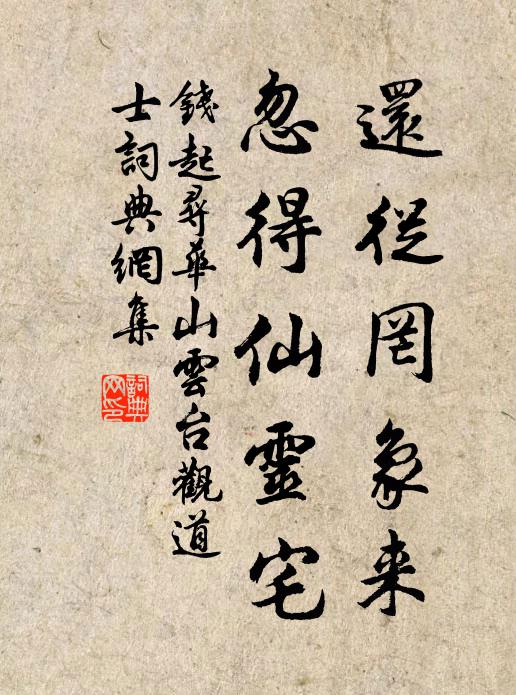 還從罔象来
忽得仙靈宅
錢起尋華山雲台觀道
士詞典網集
詞典
网印